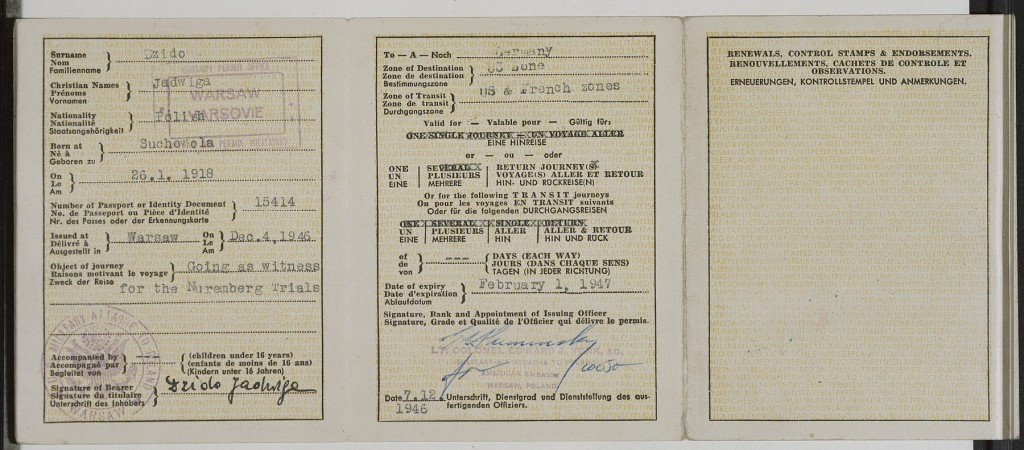 Surname
Nom
Familienname
Dzido
Christian Names
Prénoms
Vornamen
Jadwiga
PERMIT OFFICE
WARSAW
VARSOVIE
Nationality
Nationalité
Staatsangehörigkeit
Polish
Born at
Né à
Geboren zu
Suchowola
On
Le
Am
26.1. 1918
Number of Passport or Identity Document
No. de Passeport ou Pièce d'Identité
Nr. des Passes oder der Erkennungskarte
15414
Issued at
Délivré à
Ausgestellt in
Warsaw
On
Le
Am
Dec.4,1946
Object of journey
Raisons motivant le voyage
Zweck der Reise
Going as witness
for the Nuremberg Trials
MILITARY ATTACHE
WARSAW
Accompanied by
Accompagné par
Begleitet von
---
(children under 16 years)
(enfants de moins de 16 ans)
(Kinder unter 16 Jahren)
Signature of Bearer
Signature du titulaire
Unterschrift des Inhabers
Dzido Jadwiga
To — A — Nach
Germany
Zone of Destination
Zone de destination
Bestimmungszone
US Zone
Zone of Transit
Zone de transit
Durchgangszone
US & French zones
Valid for — Valable pour — Gültig für:
ONE SINGLE JOURNEY — UN VOYAGE ALLER
EINE HINREISE
or — ou — oder
ONE SEVERAL RETURN JOURNEY(S)
UN PLUSIEURS VOYAGE(S) ALLER ET RETOUR
EINE MEHRERE HIN- UND RÜCKREISE(N)
Or for the following TRANSIT journeys
Ou pour les voyages EN TRANSIT suivants
Oder für die folgenden DURCHGANGSREISEN
ONE SEVERAL SINGLE RETURN
UN PLUSIEURS ALLER ALLER & RETOUR
EINE MEHRERE HIN HIN UND RÜCK
of
de
von
---
DAYS (EACH WAY)
JOURS (DANS CHAQUE SENS)
TAGEN (IN JEDER RICHTUNG)
Date of expiry
Date d'expiration
Ablaufdatum
February 1, 1947
Signature, Rank and Appointment of Issuing Officer
Signature, Grade et Qualité de l'Officier qui délivre le permis.
LT. COLONEL EDWARD J. YORK,
WARSAW, POLAND
Date 7.12.
1946
Unterschrift, Dienstgrad und Dienststellung des aus-
fertigenden Offiziers.
RENEWALS, CONTROL STAMPS & ENDORSEMENTS.
RENOUVELLEMENTS, CACHETS DE CONTROLE ET
OBSERVATIONS.
ERNEUERUNGEN, KONTROLLSTEMPEL UND ANMERKUNGEN.